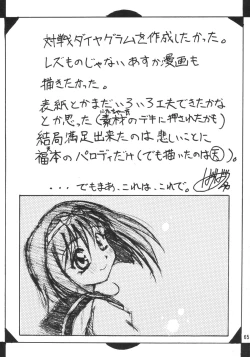 対戦ダイヤグラムを作成したかった。
レズものじゃないあすか漫画も
描きたかった。
表紙とかまだいろいろ工夫できたかな
とか思った(素材のデキに押されたかも)
結局満足出来たのは悲しいことに
福本のパロディだけ(でも描いたのは)。
...でもまあ、これは、これで。